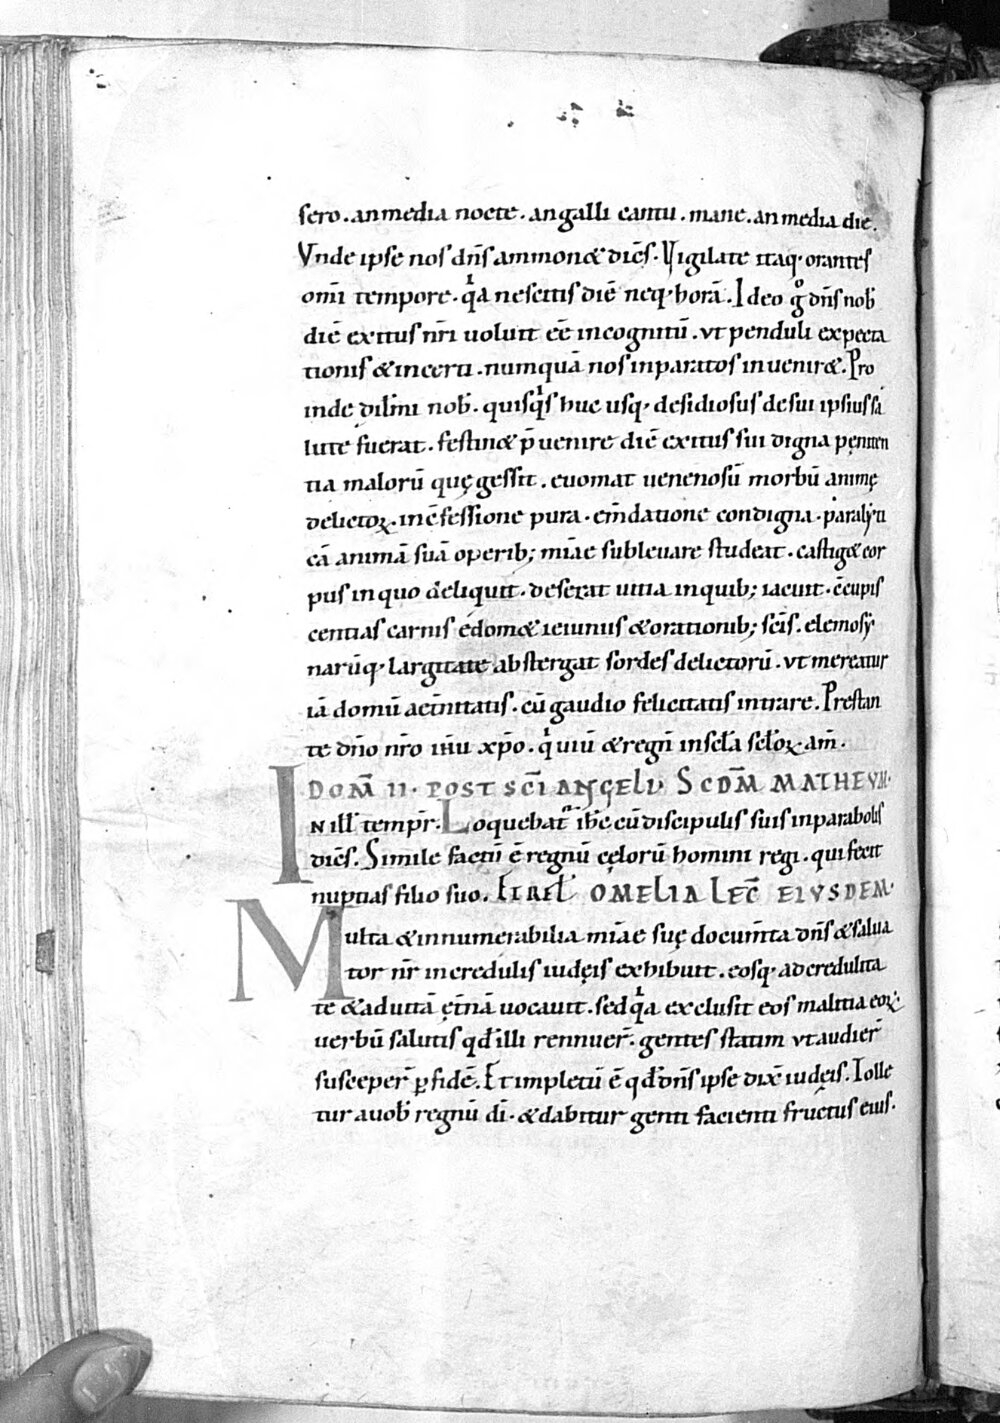 sero . an media nocte . an galli cantu . mane . an media die .
Vnde ipse nos dn̄s ammon& dicēs . Vigilate itaq; orantes
om̄i tempore . qͥa nescitis diē neq; horā . Ideo gͦ dn̄s nob̄
diē exitus nr̄i uoluit eē incognitū . ut penduli expecta
tionis & incerti . numquā nos inparatos inuenir& . Pro
inde dilm̄i nob̄ . quisqͥs huc usq; desidiosus de sui ipsius sa
lute fuerat . festin& p̄uenire diē exitus sui digna pęniten
tia malorū quę gessit . euomat uenenosū morbū animę
delictoꝝ . in c̄fessione pura . em̄datione condigna . paralyti
cā animā suā operib; mīae subleuare studeat . castig& cor
pus in quo deliquit . deserat uitia in quib; iacuit . c̄cupis
centias carnis edom& ieiuniis & orationib; sc̄is . elemosy
narūq; largitate abstergat sordes delictorū . ut mereatur
iā domū aet̄nitatis . cū gaudio felicitatis intrare . Prestan
te dn̄o nr̄o ih̄u xp̄o . qͥ uiū & regn̄ in scl̄a scl̄oꝝ . am̄ .
DOM̄ II . POST SC̄I ANGELI . SCDM̄ MATHEVM .
IN ill̄ tempr̄ . Loquebat᷑ ih̄c cū discipulis suis in parabolis
dicēs . Simile factū ē regnū cęlorū homini regi . qui fecit
nuptias filio suo . Et rel̄ OMELIA LEC̄ EIVSDEM .
Multa & innumerabilia mīae suę docum̄ta dn̄s & salua
tor nr̄ incredulis iudęis exhibuit . eosq; ad credulita
te & ad uitā ęt̄nā uocauit . sed qͥa exclusit eos malitia eoꝝ
uerbū salutis qd̄ illi rennuer̄ . gentes statim ut audier̄
susceper̄ ꝑ fidē . Et impletū ē qd̄ dn̄s ipse dix̄ iudęis . Tolle
tur a uob̄ regnū dī . & dabitur genti facienti fructus eius .